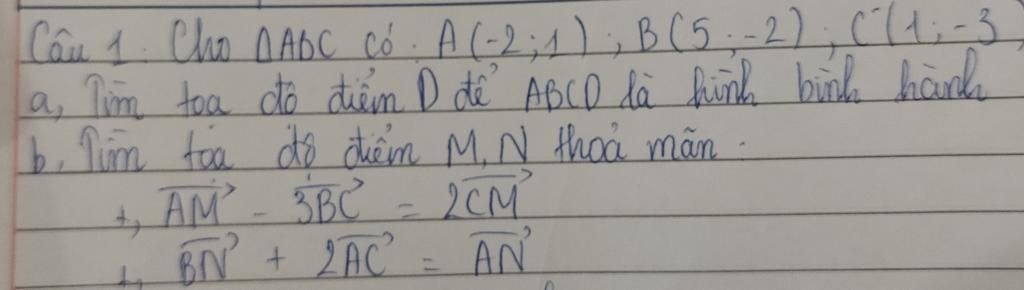 Câu 1. Cho ΔABC có. A(-2;1); B(5;-2); C(1;-3
a, Tìm toạ độ điểm D để ABCD là hình bình hành
b. Tìm toạ độ điểm M, N thoả mãn.
+, \overrightarrow{AM} - 3\overrightarrow{BC} = 2\overrightarrow{CM}
+, \overrightarrow{BN} + 2\overrightarrow{AC} = \overrightarrow{AN}